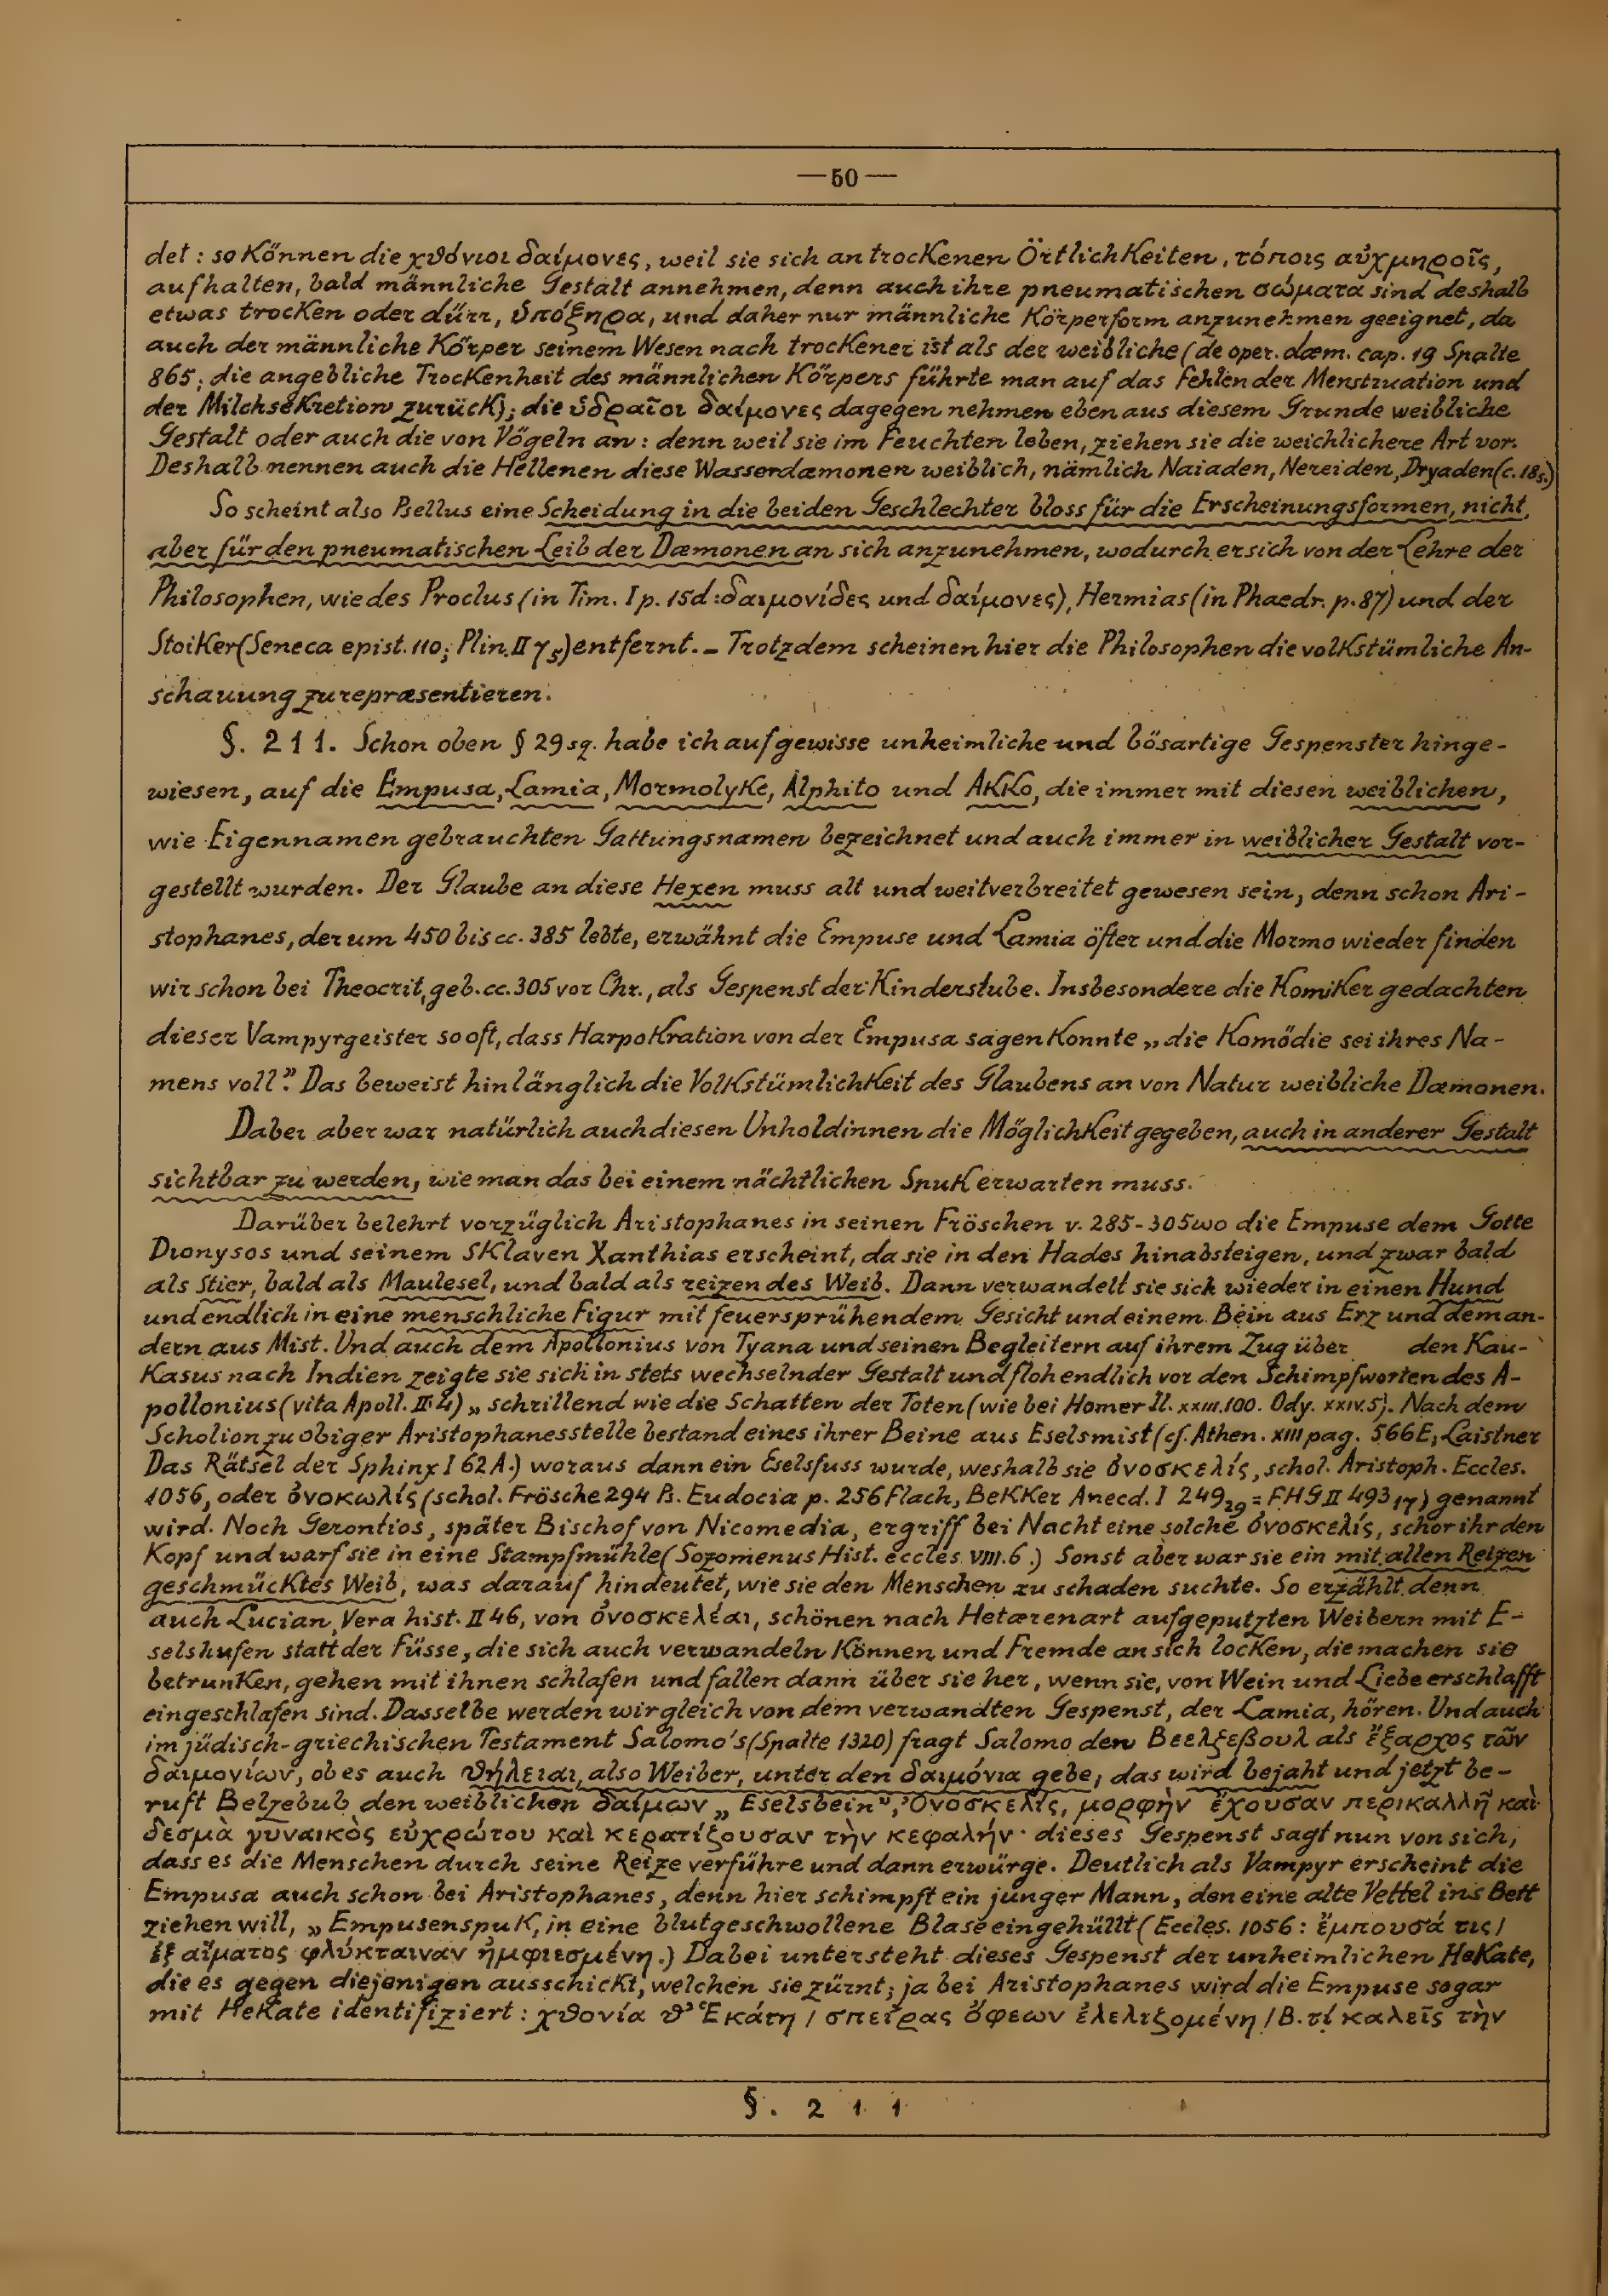 —50—
det : so können die χθόνιοι δαίμονες, weil sie sich an trockenen Örtlichkeiten, τόποις αὐχμηροῖς,
aufhalten, bald männliche Gestalt annehmen, denn auch ihre pneumatischen σώματα sind deshalb
etwas trocken oder dürr, ὑπόξηρα, und daher nur männliche Körperform anzunehmen geeignet, da
auch der männliche Körper seinem Wesen nach trockener ist als der weibliche (de oper. dæm. cap. 19 Spalte
865; die angebliche Trockenheit des männlichen Körpers führte man auf das Fehlen der Menstruation und
der Milchsekretion zurück); die ὑδραῖοι δαίμονες dagegen nehmen eben aus diesem Grunde weibliche
Gestalt oder auch die von Vögeln an: denn weil sie im Feuchten leben, ziehen sie die weichlichere Art vor.
Deshalb nennen auch die Hellenen diese Wasserdæmonen weiblich, nämlich Naiaden, Nereiden, Dryaden (c. 18s.)
So scheint also Psellus eine Scheidung in die beiden Geschlechter bloss für die Erscheinungsformen, nicht
aber für den pneumatischen Leib der Dæmonen an sich anzunehmen, wodurch er sich von der Lehre der
Philosophen, wie des Proclus (in Tim. I p. 15d: δαιμονίδες und δαίμονες), Hermias (in Phaedr. p. 87) und der
Stoiker (Seneca epist. 110; Plin. II 7 5) entfernt. – Trotzdem scheinen hier die Philosophen die volkstümliche An-
schauung zu repræsentieren.
§. 211. Schon oben § 29 sq. habe ich auf gewisse unheimliche und bösartige Gespenster hinge-
wiesen, auf die Empusa, Lamia, Mormolyke, Alphito und Akko, die immer mit diesen weiblichen,
wie Eigennamen gebrauchten Gattungsnamen bezeichnet und auch immer in weiblicher Gestalt vor-
gestellt wurden. Der Glaube an diese Hexen muss alt und weitverbreitet gewesen sein, denn schon Ari-
stophanes, der um 450 bis cc. 385 lebte, erwähnt die Empuse und Lamia öfter und die Mormo wieder finden
wir schon bei Theocrit, geb. cc. 305 vor Chr., als Gespenst der Kinderstube. Insbesondere die Komiker gedachten
dieser Vampyrgeister so oft, dass Harpokration von der Empusa sagen konnte „die Komödie sei ihres Na-
mens voll”. Das beweist hinlänglich die Volkstümlichkeit des Glaubens an von Natur weibliche Dæmonen.
Dabei aber war natürlich auch diesen Unholdinnen die Möglichkeit gegeben, auch in anderer Gestalt
sichtbar zu werden, wie man das bei einem nächtlichen Spuk erwarten muss.
Darüber belehrt vorzüglich Aristophanes in seinen Fröschen v. 285-305 wo die Empuse dem Gotte
Dionysos und seinem Sklaven Xanthias erscheint, da sie in den Hades hinabsteigen, und zwar bald
als Stier, bald als Maulesel, und bald als reizendes Weib. Dann verwandelt sie sich wieder in einen Hund
und endlich in eine menschliche Figur mit feuersprühendem Gesicht und einem Bein aus Erz und dem an-
dern aus Mist. Und auch dem Apollonius von Tyana und seinen Begleitern auf ihrem Zug über den Kau-
kasus nach Indien zeigte sie sich in stets wechselnder Gestalt und floh endlich vor den Schimpfworten des A-
pollonius (vita Apoll. II 4) „schrillend wie die Schatten der Toten (wie bei Homer Il. XXIII. 100. Ody. XXIV. 5). Nach dem
Scholion zu obiger Aristophanesstelle bestand eines ihrer Beine aus Eselsmist (cf. Athen. XIII pag. 566E; Laistner
Das Rätsel der Sphinx I 62 A.) woraus dann ein Eselsfuss wurde, weshalb sie ὀνοσκελίς, schol. Aristoph. Eccles.
1056, oder ὀνοκωλίς (schol. Frösche 294 Ps. Eudocia p. 256 Flach, Bekker Anecd. I 249 29 = FHG II 493 17) genannt
wird. Noch Gerontios, später Bischof von Nicomedia, ergriff bei Nacht eine solche ὀνοσκελίς, schor ihr den
Kopf und warf sie in eine Stampfmühle (Sozomenus Hist. eccles VIII. 6.) Sonst aber war sie ein mit allen Reizen
geschmücktes Weib, was darauf hindeutet, wie sie den Menschen zu schaden suchte. So erzählt denn
auch Lucian, Vera hist. II 46, von ὀνοσκελέαι, schönen nach Hetærenart aufgeputzten Weibern mit E-
selshufen statt der Füsse, die sich auch verwandeln können und Fremde an sich locken, die machen sie
betrunken, gehen mit ihnen schlafen und fallen dann über sie her, wenn sie, von Wein und Liebe erschlafft
eingeschlafen sind. Dasselbe werden wir gleich von dem verwandten Gespenst, der Lamia, hören. Und auch
im jüdisch-griechischen Testament Salomo's (Spalte 1320) fragt Salomo den Βεελζεβουλ als ἔξαρχος τῶν
δαιμονίων, ob es auch θήλειαι, also Weiber, unter den δαιμόνια gebe; das wird bejaht und jetzt be-
ruft Belzebub den weiblichen δαίμων „Eselsbein”, Ὀνοσκελίς, μορφὴν ἔχουσαν περικαλλῆ καὶ
δεσμὰ γυναικὸς εὐχρώτου καὶ κερατίζουσαν τὴν κεφαλήν· dieses Gespenst sagt nun von sich,
dass es die Menschen durch seine Reize verführe und dann erwürge. Deutlich als Vampyr erscheint die
Empusa auch schon bei Aristophanes, denn hier schimpft ein junger Mann, den eine alte Vettel ins Bett
ziehen will, „Empusenspuk, in eine blutgeschwollene Blase eingehüllt (Eccles. 1056: ἔμπουσά τις /
ἐξ αἵματος φλύκταιναν ἠμφιεσμένη.) Dabei untersteht dieses Gespenst der unheimlichen Hekate,
die es gegen diejenigen ausschickt, welchen sie zürnt; ja bei Aristophanes wird die Empuse sogar
mit Hekate identifiziert: χθονία θ' Ἑκάτη / σπείρας ὄφεων ἐλελιζομένη / B. τί καλεῖς τὴν
§. 2 1 1